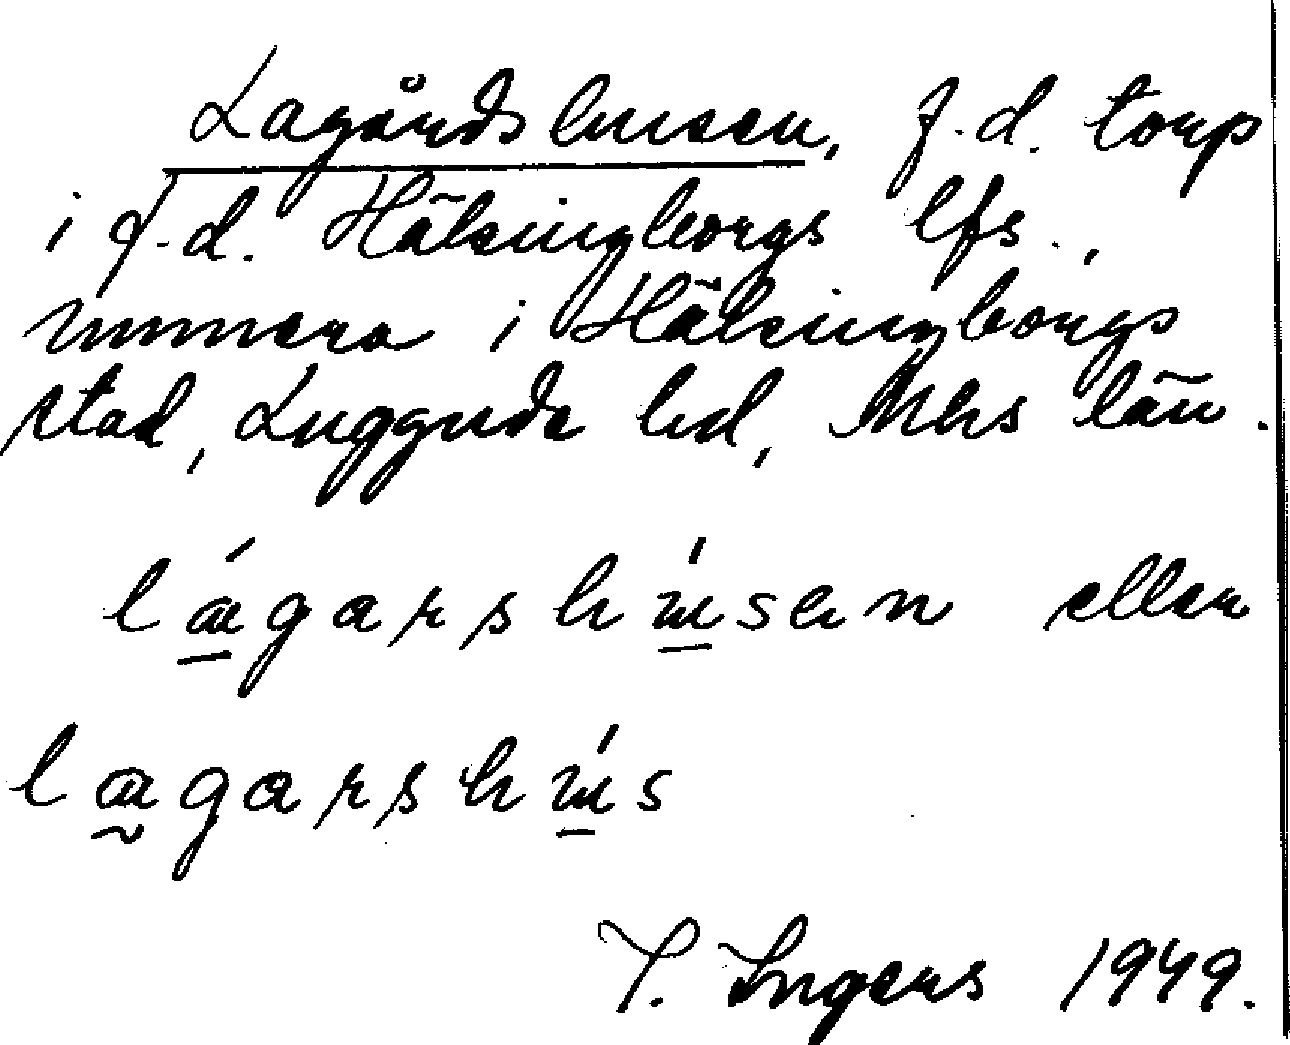 Lagårdshusen, f.d. torp
i f.d. Hälsingborgs lfs.,
numera i Hälsingborgs
stad, Luggude hd, Mhs län.
lǽgarshúsen eller
lægarshús
I. Ingers 1949.